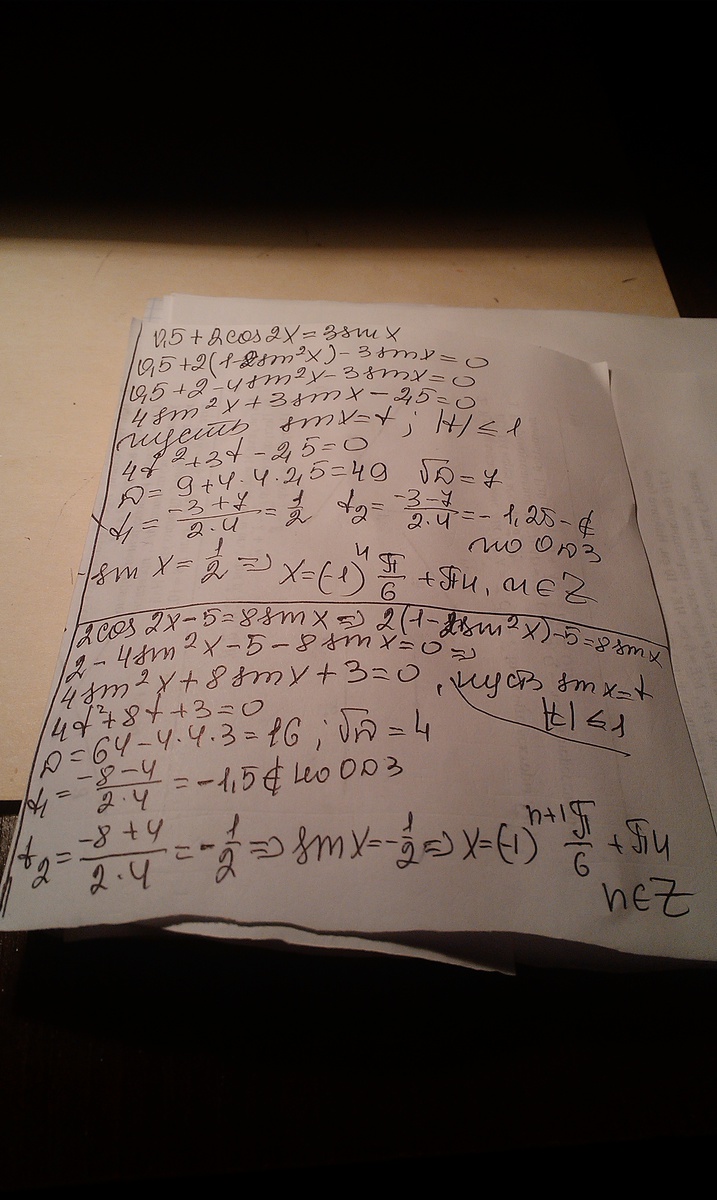 0,5+2cos2x=3sinx
0,5+2(1-2sin²x)-3sinx=0
0,5+2-4sin²x-3sinx=0
4sin²x+3sinx-2,5=0
пусть sinx=t; |t|≤1
4t²+3t-2,5=0
D=9+4·4·2,5=49 √D=7
t₁=(-3+7)/(2·4)=1/2 t₂=(-3-7)/(2·4)=-1,25-∉
по ОДЗ
sin x=1/2⇒x=(-1)ⁿ π/6+πn, n∈Z
2cos2x-5=8sinx⇒2(1-2sin²x)-5=8sinx
2-4sin²x-5-8sinx=0⇒
4sin²x+8sinx+3=0, пусть sinx=t
|t|≤1
4t²+8t+3=0
D=64-4·4·3=16; √D=4
t₁=(-8-4)/(2·4)=-1,5∉ по ОДЗ
t₂=(-8+4)/(2·4)=-1/2⇒sinx=-1/2⇒x=(-1)ⁿ⁺¹ π/6+πn
n∈Z